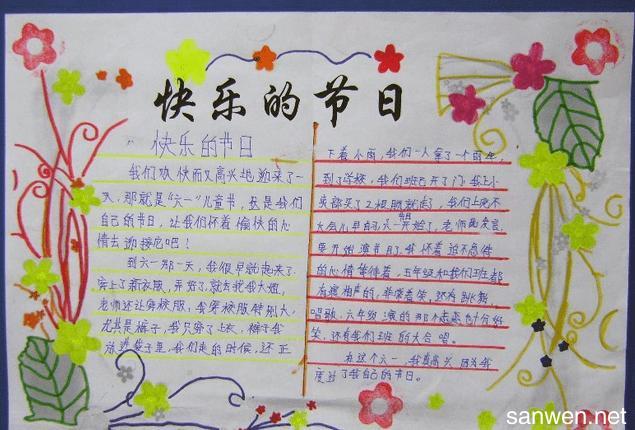 快乐的节日
快乐的节日
我们欢快而又高兴地迎来了一
天，那就是“六一”儿童节，这是我们
自己的节日，让我们怀着愉快的心
情去迎接它吧！
到六一那一天，我很早就起来了.
穿上了新衣服，弄好了，就去找我大姐，
老师还让穿校服，我穿校服特别大，
尤其是裤子，我只穿了上衣，裤子我
放进袋子里，我们走的时候，还正
下着小雨，我们一人拿了一个雨伞，
到了学校，我们班已开了门，我上小
卖部买了2根
就走了，我们上完不
大会儿早自习六一开始了，老师
发言，
里开始演节目了，我怀着迫不急待
的心情等待着，五年级和我们班都
有演相声的，非常着笑，还有跳舞，
唱歌，六年级演的那个
十分好
笑，还有我们班的大合唱。
在这个六一，我真高兴，因为我
度过了我自己的节日。
sanwen.net